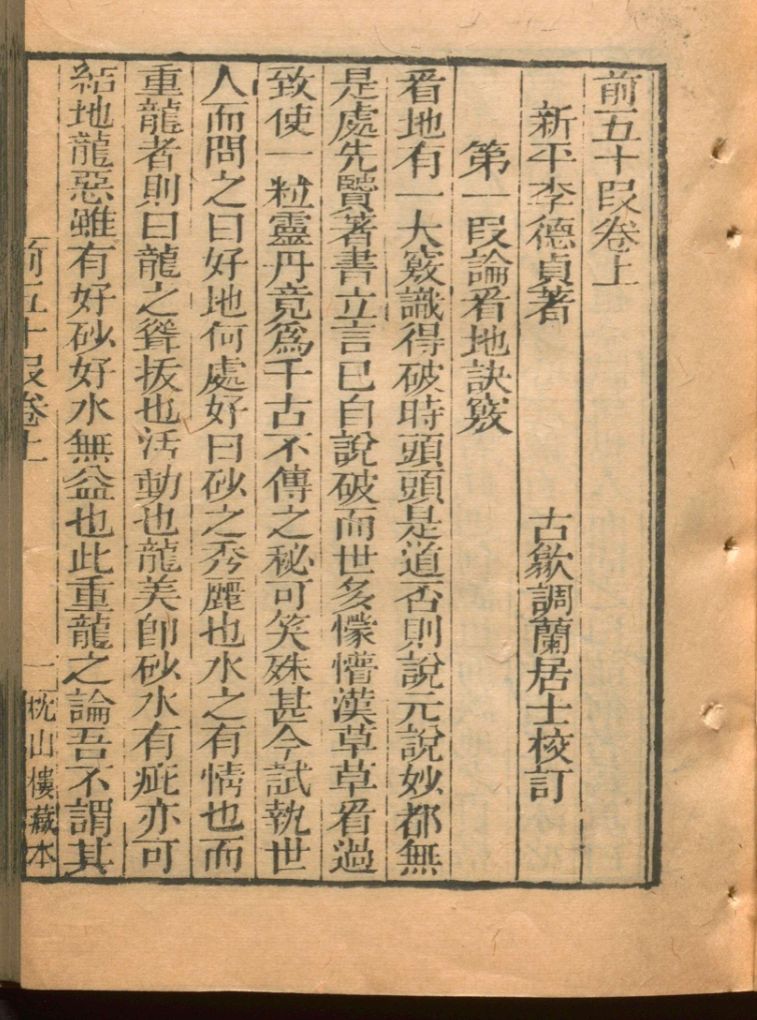 前五十叚卷上
新平李德貞著　古歙調蘭居士校訂
第一叚論看地訣竅
看地有一大竅識得破時頭頭是道否則說元說妙都無
是處先賢著書立言已自說破而世多懞懵漢草草看過
致使一粒靈丹竟爲千古不傳之秘可笑殊甚今試執世
人而問之曰好地何處好曰砂之秀麗也水之有情也而
重龍者則曰龍之聳拔也活動也龍美卽砂水有疵亦可
結地龍惡雖有好砂好水無益也此重龍之論吾不謂其
前五十叚卷上　一　枕山樓藏本